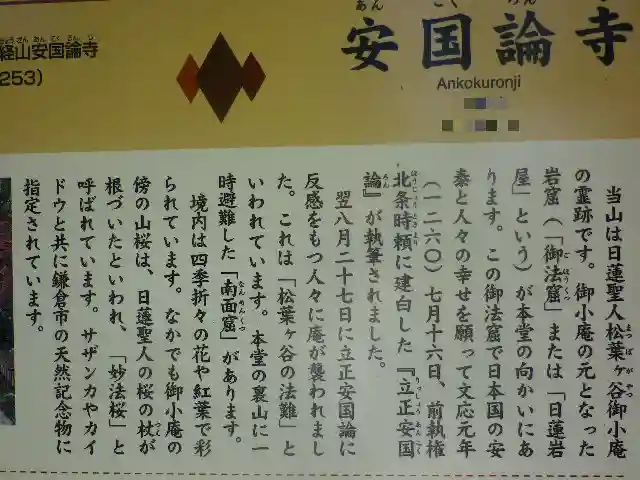 経山安国論寺
253)
安国論寺
Ankokuronji
当山は日蓮聖人松葉ヶ谷御小庵
の霊跡です。御小庵の元となった
岩窟（「御法窟」または「日蓮岩
屋」という）が本堂の向かいにあ
ります。この御法窟で日本国の安
泰と人々の幸せを願って文応元年
（一二六〇）七月十六日、前執権
北条時頼に建白した『立正安国
論』が執筆されました。
翌八月二十七日に立正安国論に
反感をもつ人々に庵が襲われまし
た。これは「松葉ヶ谷の法難」と
いわれています。本堂の裏山に一
時避難した「南面窟」があります。
境内は四季折々の花や紅葉で彩
られています。なかでも御小庵の
傍の山桜は、日蓮聖人の桜の杖が
根づいたといわれ、「妙法桜」と
呼ばれています。サザンカやカイ
ドウと共に鎌倉市の天然記念物に
指定されています。